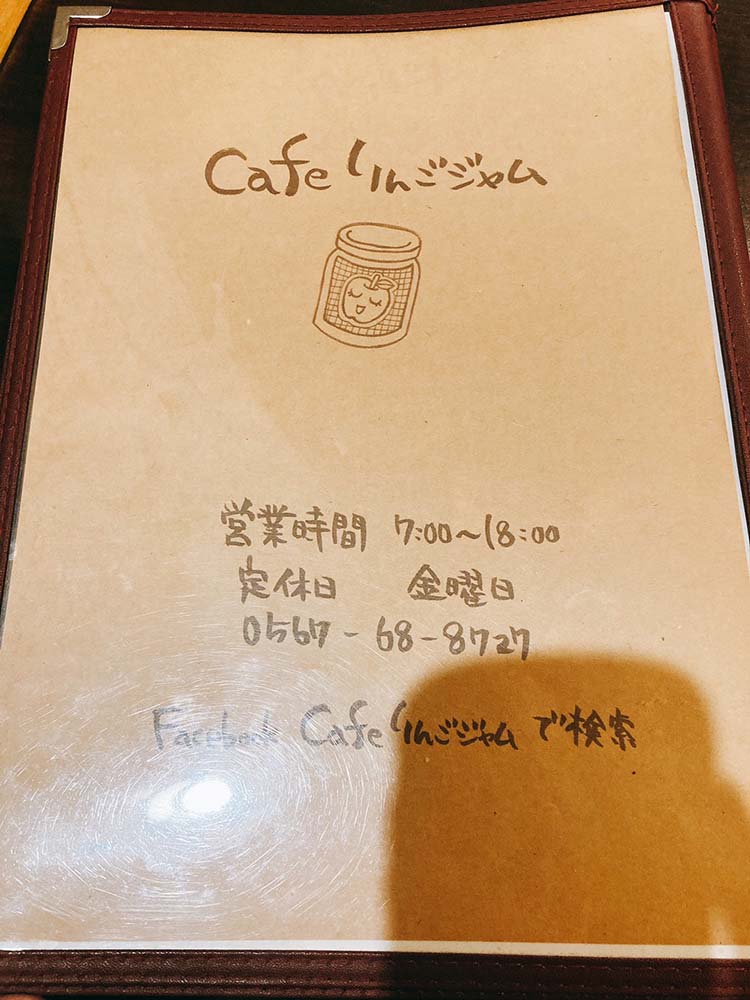 Cafe りんごジャム
営業時間 7:00～18:00
定休日 金曜日
0567-68-8727
Facebook Cafe りんごジャム で検索